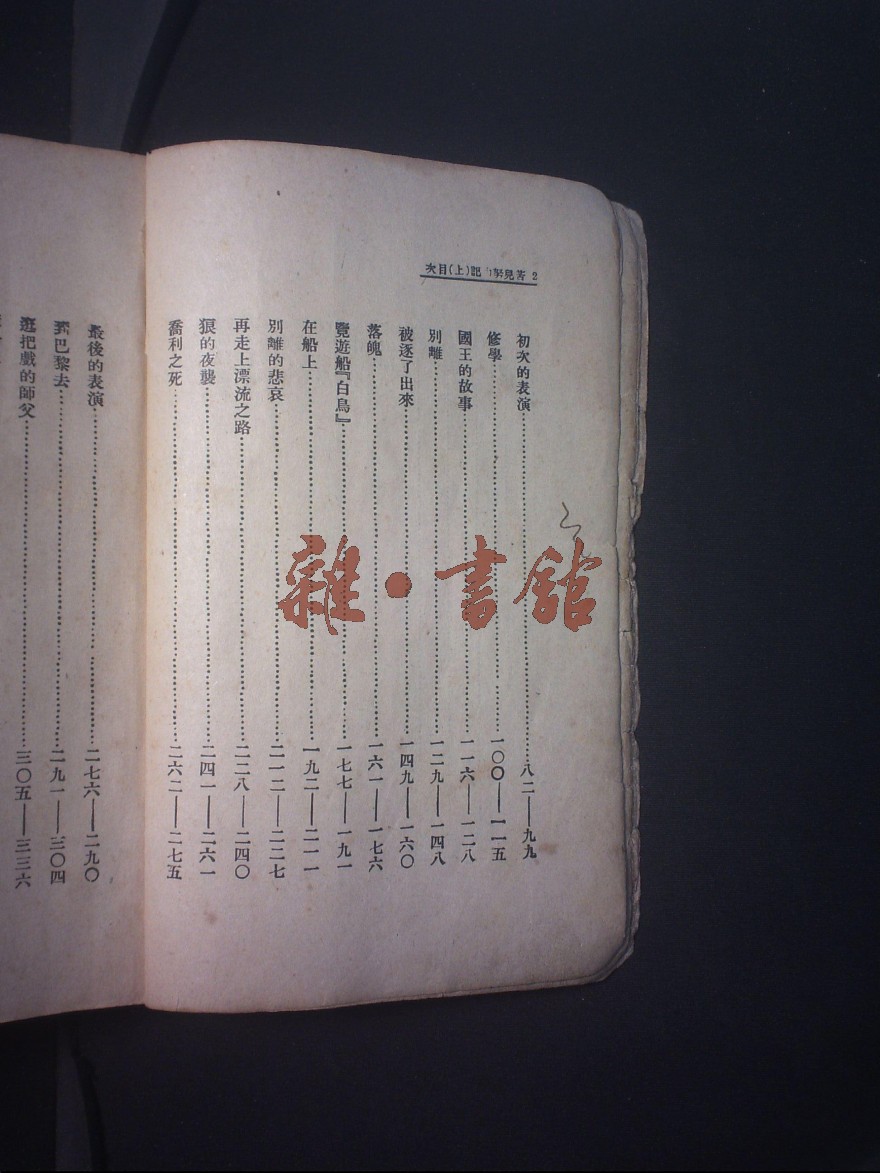 2 苦兒努力記(上)目次
初次的表演……八二——九九
修學……一〇〇——一一五
國王的故事……一一六——一二八
別離……一二九——一四八
被逐了出來……一四九——一六〇
落魄……一六一——一七六
覽遊船『白鳥』……一七七——一九一
在船上……一九二——二一一
別離的悲哀……二一二——二二七
再走上漂流之路……二二八——二四〇
狼的夜襲……二四一——二六一
喬利之死……二六二——二七五
最後的表演……二七六——二九〇
到巴黎去……二九一——三〇四
逛把戲的師父……三〇五——三三六
雜·書館